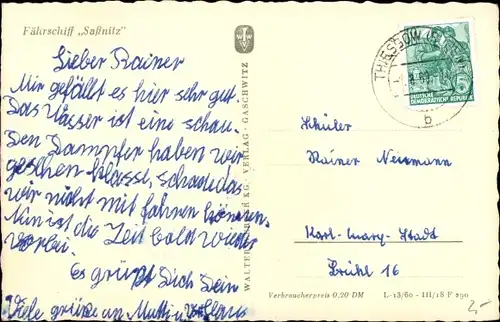 Fährschiff „Saßnitz"
Lieber Rainer
Mir gefällt es hier sehr gut.
Das Wasser ist eine schau.
Den Dampfer haben wir
gesehen klasse, schade das
wir nicht mit fahren können.
Nun ist die Zeit bald wieder
vorbei.
Es grüßt Dich Dein
Viele grüße an Mutti u.
WALTER KG. VERLAG · GASCHWITZ
THIESSOW
b
DEUTSCHE
DEMOKRATISCHE REPUBLIK
Schüler
Rainer Neumann
Karl-Marx-Stadt
Brühl 16
Verbraucherpreis 0,20 DM L-13/60 - III/18 F 290